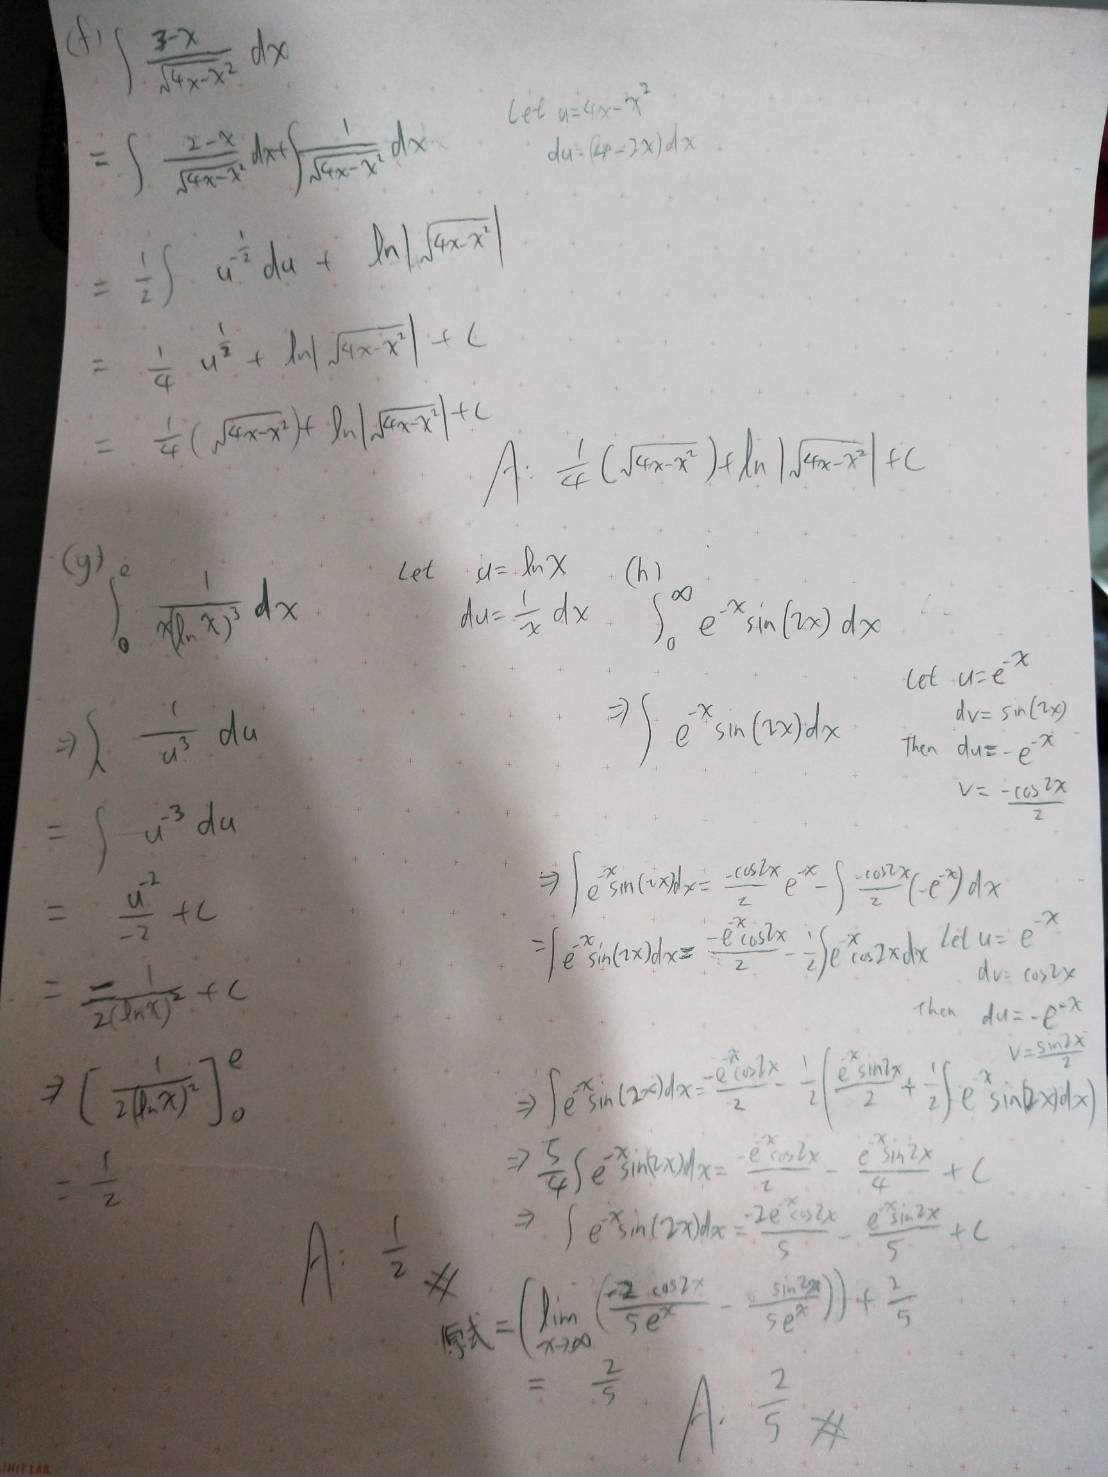 (f) ∫ (3-x)/√(4x-x²) dx
= ∫ (2-x)/√(4x-x²) dx + ∫ 1/√(4x-x²) dx
Let u=4x-x²
du=(4-2x)dx
= 1/2 ∫ u^(-1/2) du + ln|√(4x-x²)|
= 1/4 u^(1/2) + ln|√(4x-x²)| + C
= 1/4 (√(4x-x²)) + ln|√(4x-x²)| + C
A: 1/4 (√(4x-x²)) + ln|√(4x-x²)| + C
(g) ∫₀^e 1/(x(ln x)³) dx
Let u = ln x
du = 1/x dx
⇒ ∫ 1/u³ du
= ∫ u⁻³ du
= u⁻²/-2 + C
= -1/(2(ln x)²) + C
⇒ [1/(2(ln x)²)]₀^e
= 1/2
A: 1/2 #
(h) ∫₀^∞ e⁻ˣ sin(2x) dx
⇒ ∫ e⁻ˣ sin(2x) dx
Let u=e⁻ˣ
dv= sin(2x)
Then du= -e⁻ˣ
v= -cos2x/2
⇒ ∫ e⁻ˣ sin(2x)dx = -cos2x/2 e⁻ˣ - ∫ -cos2x/2 (-e⁻ˣ) dx
= ∫ e⁻ˣ sin(2x)dx = -e⁻ˣcos2x/2 - 1/2 ∫ e⁻ˣ cos2x dx
Let u= e⁻ˣ
dv= cos2x
Then du= -e⁻ˣ
v= sin2x/2
⇒ ∫ e⁻ˣ sin(2x)dx = -e⁻ˣcos2x/2 - 1/2 (e⁻ˣsin2x/2 + 1/2 ∫ e⁻ˣ sin(2x)dx)
⇒ 5/4 ∫ e⁻ˣ sin(2x)dx = -e⁻ˣcos2x/2 - e⁻ˣsin2x/4 + C
⇒ ∫ e⁻ˣ sin(2x)dx = -2e⁻ˣcos2x/5 - e⁻ˣsin2x/5 + C
原式 = (lim x→∞ (-2 cos2x/5eˣ - sin2x/5eˣ)) + 2/5
= 2/5
A: 2/5 #